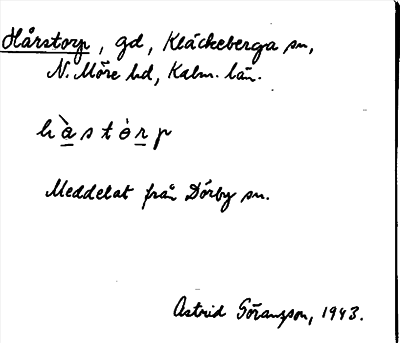 Hårstorp, gd, Kläckeberga sn,
N. Möre hd, Kalm. län.
hàstòrp
Meddelat från Dörby sn.
Astrid Göranzson, 1943.